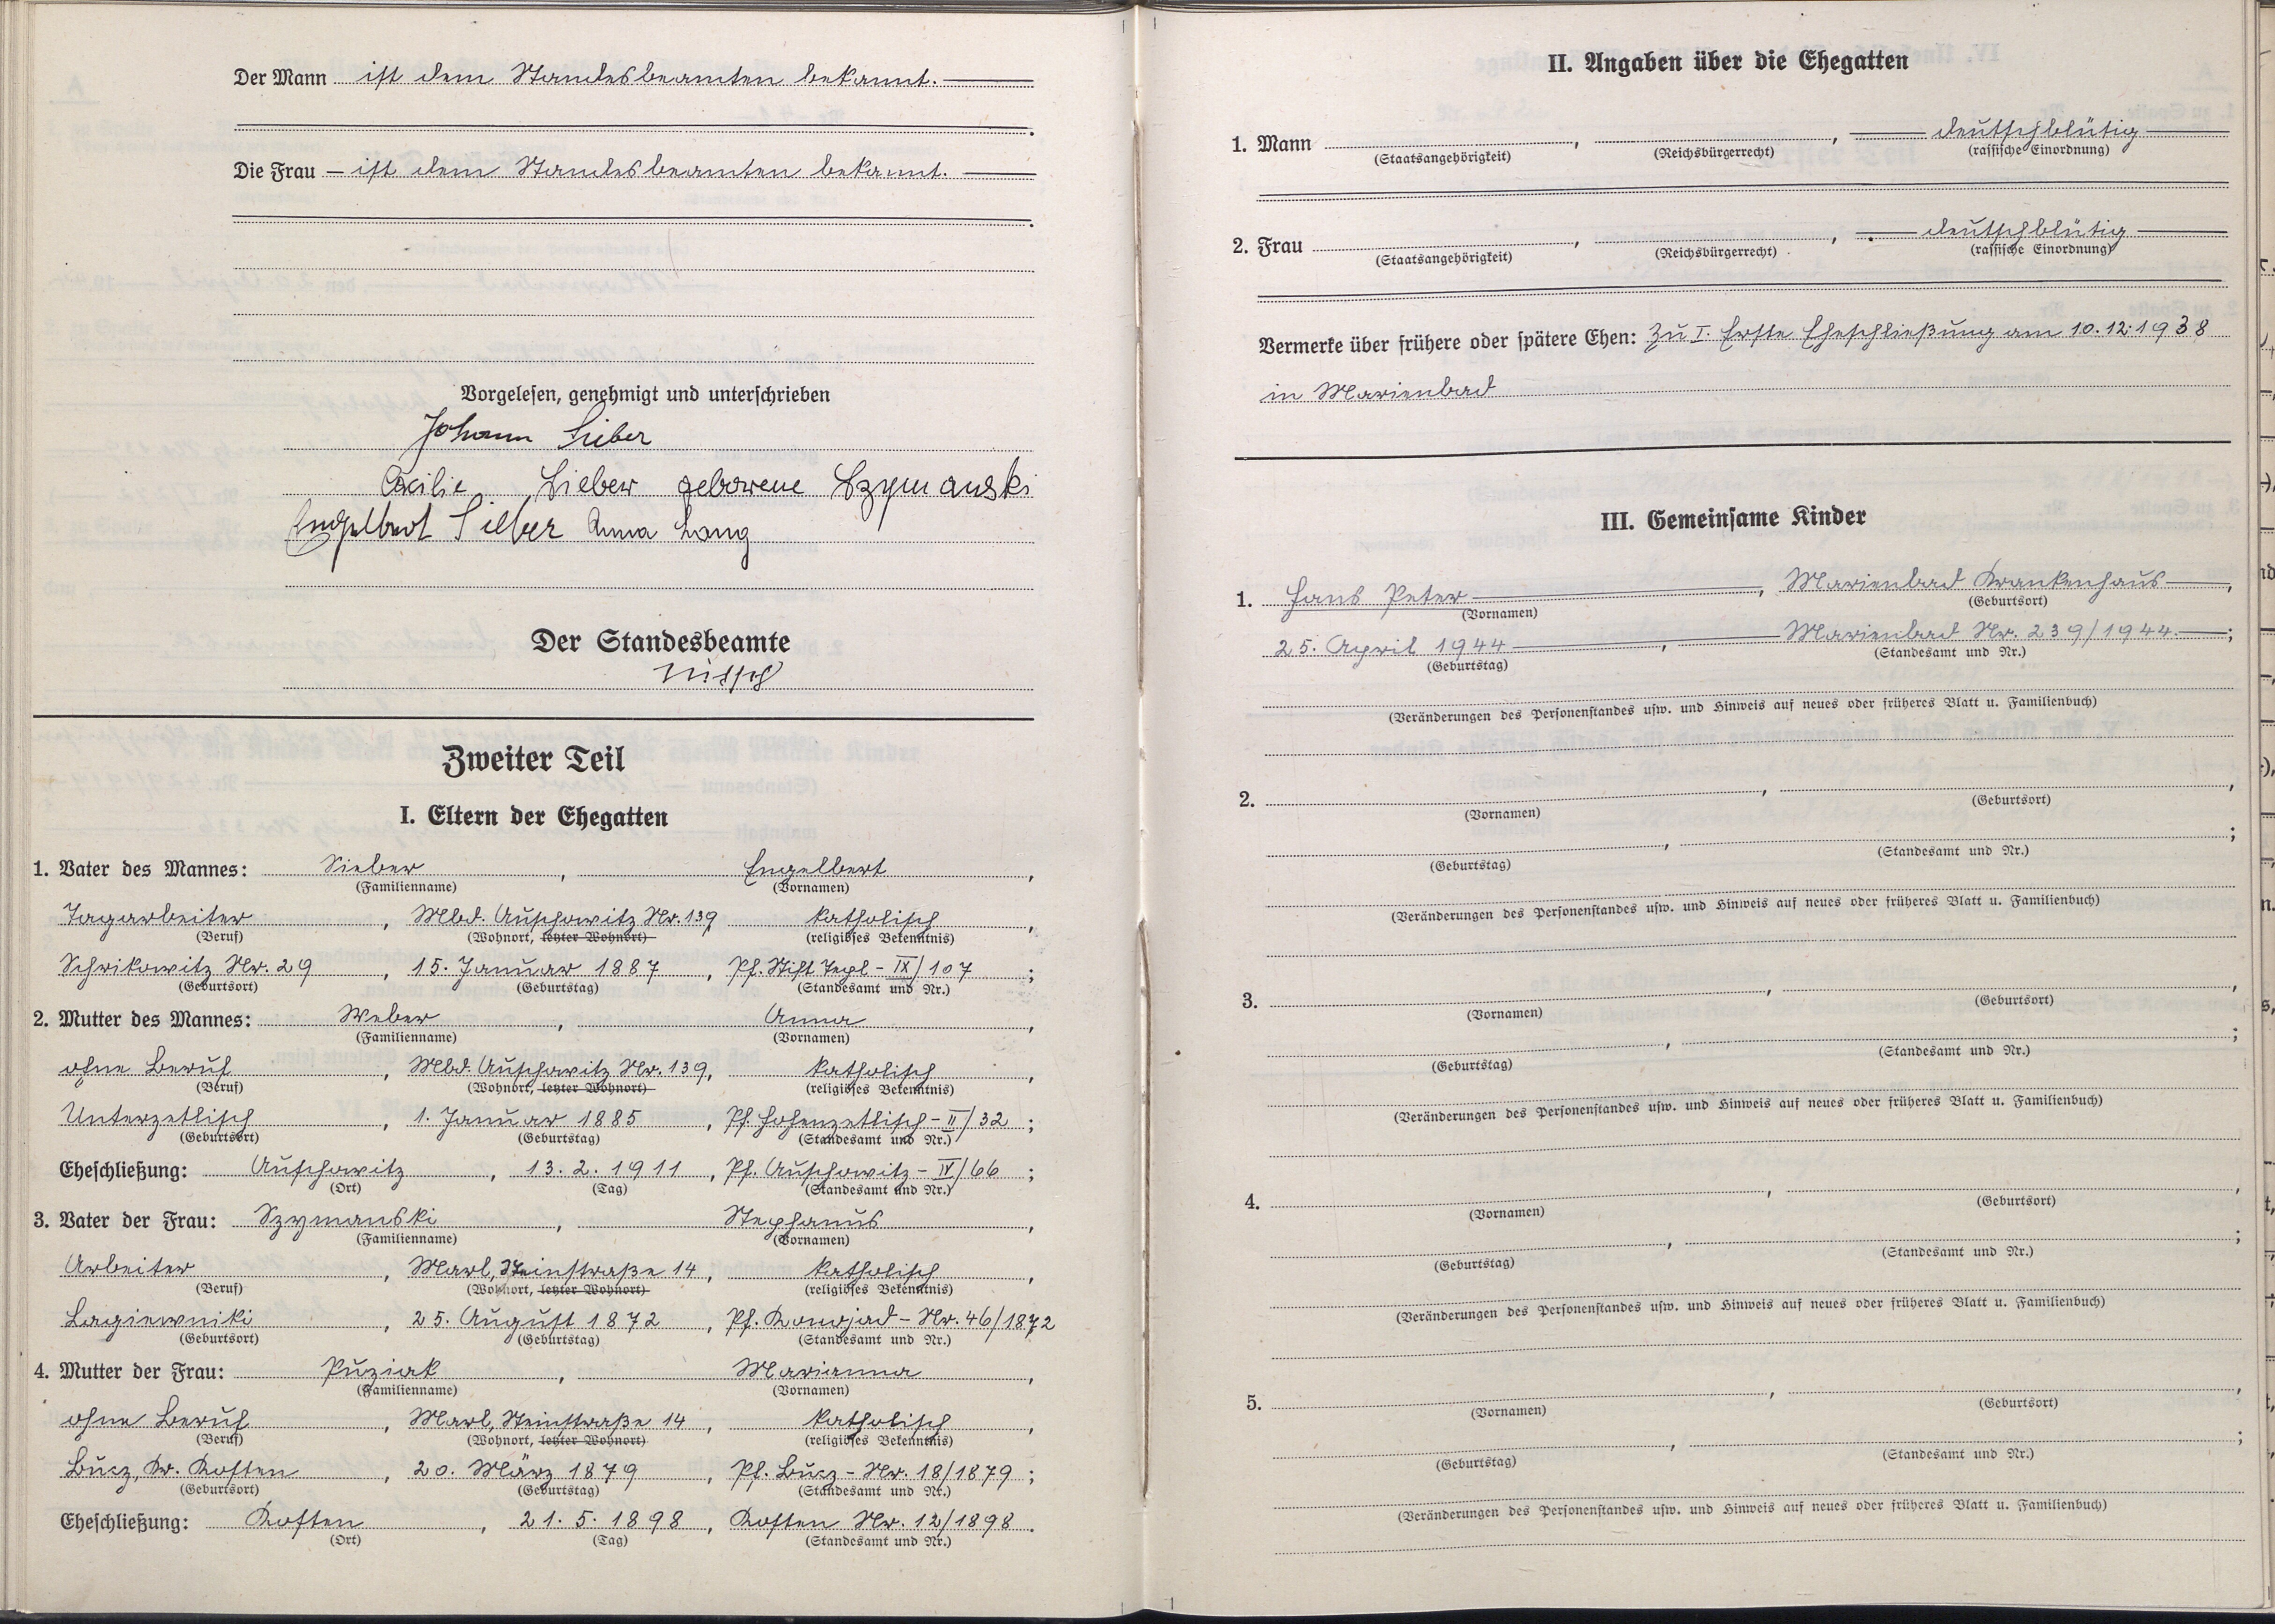 Der Mann ist dem Standesbeamten bekannt.
Die Frau ist dem Standesbeamten bekannt.
Vorgelesen, genehmigt und unterschrieben
Johann Sieber
Cäcilie Sieber geborene Szymanski
Engelbert Sieber Anna Lang
Der Standesbeamte
Zweiter Teil
I. Eltern der Ehegatten
1. Vater des Mannes: Sieber, Engelbert,
(Familienname) (Vornamen)
Tagarbeiter, Mbd. Auschowitz Nr. 139 katholisch,
(Beruf) (Wohnort, letzter Wohnort) (religiöses Bekenntnis)
Schrikowitz Nr. 29, 15. Januar 1887, Pf. Stift Tepl - IX/107;
(Geburtsort) (Geburtstag) (Standesamt und Nr.)
2. Mutter des Mannes: Weber, Anna,
(Familienname) (Vornamen)
ohne Beruf, Mbd. Auschowitz Nr. 139, katholisch,
(Beruf) (Wohnort, letzter Wohnort) (religiöses Bekenntnis)
Unterzetlisch, 1. Januar 1885, Pf. Hohenzetlisch - II/32;
(Geburtsort) (Geburtstag) (Standesamt und Nr.)
Eheschließung: Auschowitz, 13. 2. 1911, Pf. Auschowitz - IV/66;
(Ort) (Tag) (Standesamt und Nr.)
3. Vater der Frau: Szymanski, Stephanus,
(Familienname) (Vornamen)
Arbeiter, Marl, Steinstraße 14, katholisch,
(Beruf) (Wohnort, letzter Wohnort) (religiöses Bekenntnis)
Lagiewniki, 25. August 1872, Pf. Konojad - Nr. 46/1872
(Geburtsort) (Geburtstag) (Standesamt und Nr.)
4. Mutter der Frau: Puziak, Marianna,
(Familienname) (Vornamen)
ohne Beruf, Marl, Steinstraße 14, katholisch,
(Beruf) (Wohnort, letzter Wohnort) (religiöses Bekenntnis)
Bucz, Kr. Kosten, 20. März 1879, Pf. Bucz - Nr. 18/1879;
(Geburtsort) (Geburtstag) (Standesamt und Nr.)
Eheschließung: Kosten, 21. 5. 1898, Kosten Nr. 12/1898.
(Ort) (Tag) (Standesamt und Nr.)
II. Angaben über die Ehegatten
1. Mann , , deutschblütig
(Staatsangehörigkeit) (Reichsbürgerrecht) (rassische Einordnung)
2. Frau , , deutschblütig
(Staatsangehörigkeit) (Reichsbürgerrecht) (rassische Einordnung)
Vermerke über frühere oder spätere Ehen: Zu I. Erste Eheschließung am 10.12.1938
in Marienbad
III. Gemeinsame Kinder
1. Hans Peter, Marienbad Krankenhaus,
(Vornamen) (Geburtsort)
25. April 1944, Marienbad Nr. 239/1944.;
(Geburtstag) (Standesamt und Nr.)
(Veränderungen des Personenstandes usw. und Hinweis auf neues oder früheres Blatt u. Familienbuch)
2. , ,
(Vornamen) (Geburtsort)
, ;
(Geburtstag) (Standesamt und Nr.)
(Veränderungen des Personenstandes usw. und Hinweis auf neues oder früheres Blatt u. Familienbuch)
3. , ,
(Vornamen) (Geburtsort)
, ;
(Geburtstag) (Standesamt und Nr.)
(Veränderungen des Personenstandes usw. und Hinweis auf neues oder früheres Blatt u. Familienbuch)
4. , ,
(Vornamen) (Geburtsort)
, ;
(Geburtstag) (Standesamt und Nr.)
(Veränderungen des Personenstandes usw. und Hinweis auf neues oder früheres Blatt u. Familienbuch)
5. , ,
(Vornamen) (Geburtsort)
, ;
(Geburtstag) (Standesamt und Nr.)
(Veränderungen des Personenstandes usw. und Hinweis auf neues oder früheres Blatt u. Familienbuch)